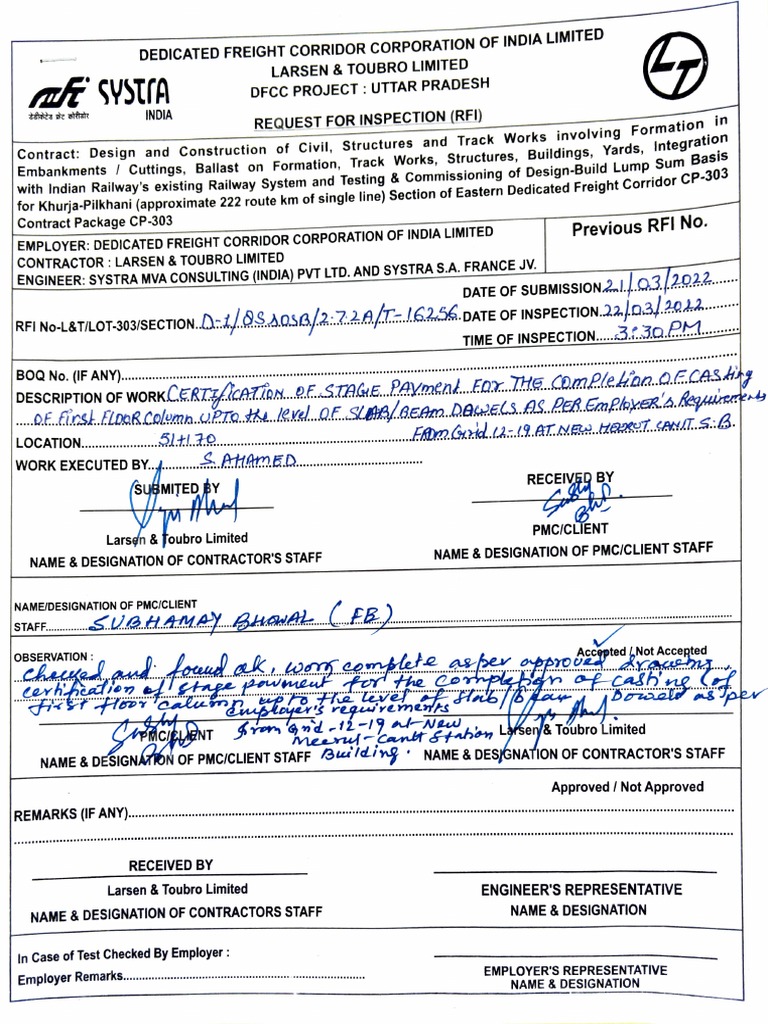 DEDICATED FREIGHT CORRIDOR CORPORATION OF INDIA LIMITED
LARSEN & TOUBRO LIMITED
DFCC PROJECT : UTTAR PRADESH
REQUEST FOR INSPECTION (RFI)
डेडीकेटेड फ्रेट कोरीडोर
SYSTRA
INDIA
LT
Contract: Design and Construction of Civil, Structures and Track Works involving Formation in
Embankments / Cuttings, Ballast on Formation, Track Works, Structures, Buildings, Yards, Integration
with Indian Railway's existing Railway System and Testing & Commissioning of Design-Build Lump Sum Basis
for Khurja-Pilkhani (approximate 222 route km of single line) Section of Eastern Dedicated Freight Corridor CP-303
Contract Package CP-303
EMPLOYER: DEDICATED FREIGHT CORRIDOR CORPORATION OF INDIA LIMITED
CONTRACTOR : LARSEN & TOUBRO LIMITED
ENGINEER: SYSTRA MVA CONSULTING (INDIA) PVT LTD. AND SYSTRA S.A. FRANCE JV.
Previous RFI No.
DATE OF SUBMISSION 21/03/2022
RFI No-L&T/LOT-303/SECTION D-1/QS10SB/2.7.2A/T-16256 DATE OF INSPECTION 22/03/2022
TIME OF INSPECTION 3:30 PM
BOQ No. (IF ANY)
DESCRIPTION OF WORK CERTIFICATION OF STAGE PAYMENT FOR THE COMPLETION OF CASTING
OF FIRST FLOOR COLUMN UPTO the level OF SLAB/BEAM DAWELS AS PER Employer's Requirements
LOCATION 51+170 FROM Grid 12-19 AT NEW MEERUT CANTT S.B
WORK EXECUTED BY S. AHAMED
SUBMITED BY
RECEIVED BY
Larsen & Toubro Limited
PMC/CLIENT
NAME & DESIGNATION OF CONTRACTOR'S STAFF
NAME & DESIGNATION OF PMC/CLIENT STAFF
NAME/DESIGNATION OF PMC/CLIENT
STAFF SUBHAMAY BHOWAL (FB)
OBSERVATION : Accepted / Not Accepted
Checked and found ok, work complete as per approved drawing
certification of stage payment for the completion of casting of
first floor column upto the level of slab/Beam Doweld as per
employer's requirements
from Grid-12-19 at New
Meerut-Cantt Station
Building.
PMC/CLIENT
Larsen & Toubro Limited
NAME & DESIGNATION OF PMC/CLIENT STAFF
NAME & DESIGNATION OF CONTRACTOR'S STAFF
Approved / Not Approved
REMARKS (IF ANY)
RECEIVED BY
Larsen & Toubro Limited
NAME & DESIGNATION OF CONTRACTORS STAFF
ENGINEER'S REPRESENTATIVE
NAME & DESIGNATION
In Case of Test Checked By Employer :
Employer Remarks
EMPLOYER'S REPRESENTATIVE
NAME & DESIGNATION